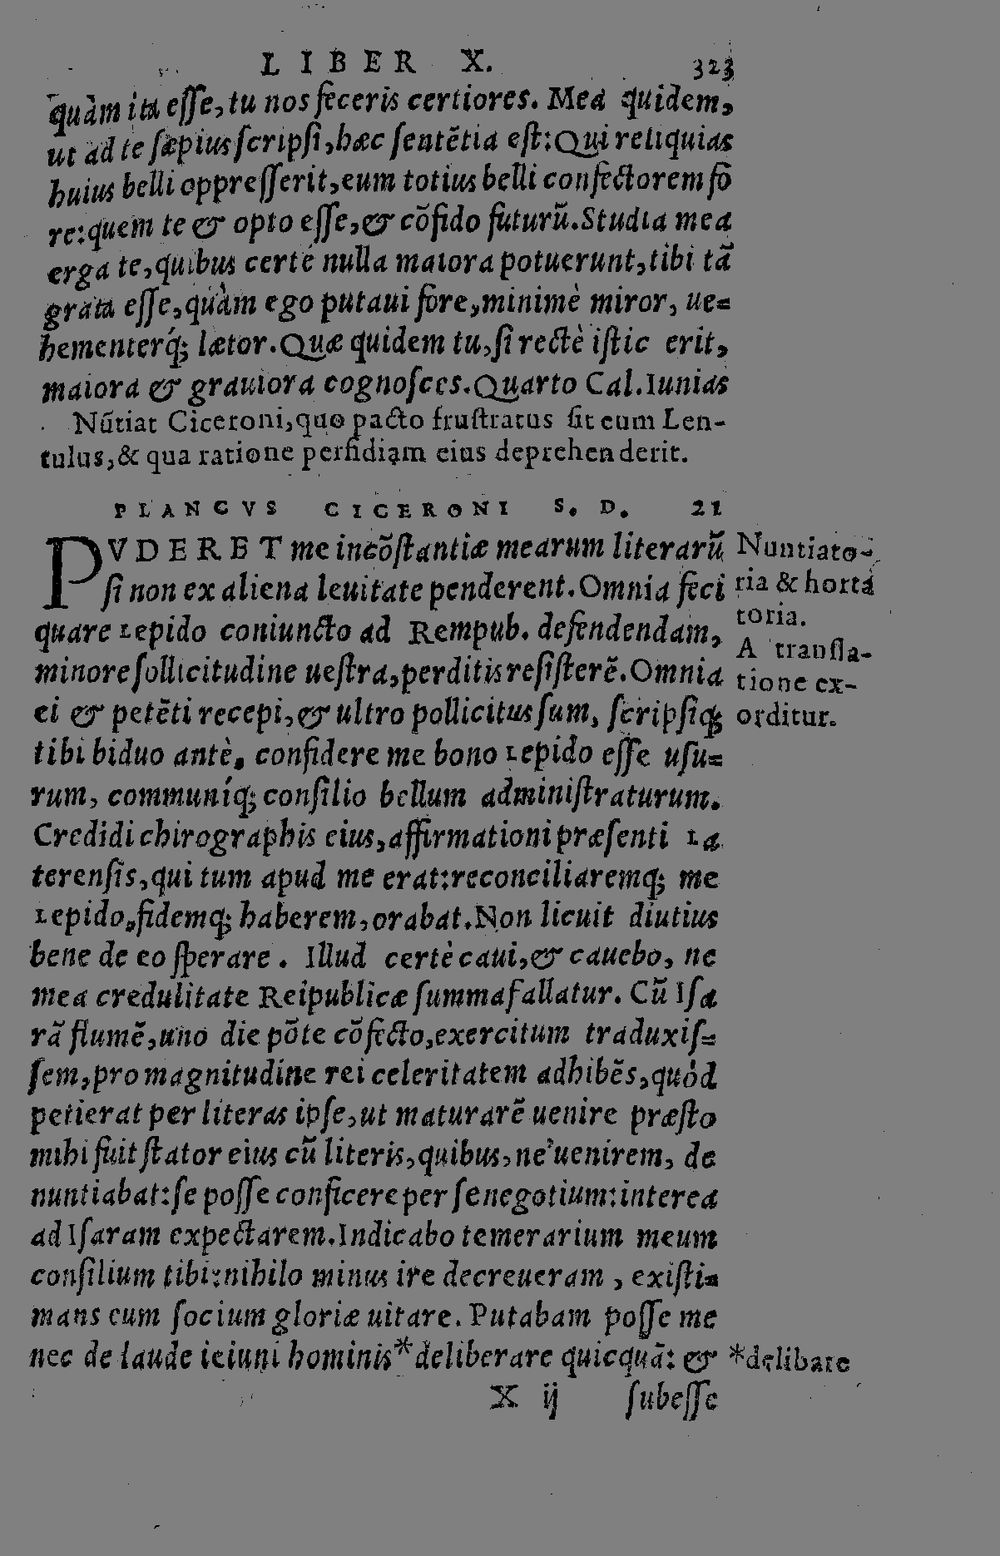 LIBER X. 323
quàm ita esse, tu nos feceris certiores. Mea quidem,
ut ad te sæpius scripsi, hæc sentẽtia est: Qui reliquias
huius belli oppresserit, eum totius belli confectorem fo
re: quem te & opto esse, & cõfido futurũ. Studia mea
erga te, quibus certè nulla maiora potuerunt, tibi tã
grata esse, quàm ego putaui fore, minimè miror, ue=
hementerq́; lætor. Quæ quidem tu, si rectè istic erit,
maiora & grauiora cognosces. Quarto Cal. Iunias
Nũtiat Ciceroni, quo pacto frustratus sit eum Len-
tulus, & qua ratione perfidiam eius deprehenderit.
PLANCVS CICERONI S. D. 21
PVDERET me incõstantiæ mearum literarũ
si non ex aliena leuitate penderent. Omnia feci
quare Lepido coniuncto ad Rempub. defendendam,
minore sollicitudine uestra, perditis resisterẽ. Omnia
ei & petẽti recepi, & ultro pollicitus sum, scripsiq;
tibi biduo antè, confidere me bono Lepido esse usu=
rum, communíq; consilio bellum administraturum.
Credidi chirographis eius, affirmationi præsenti La
terensis, qui tum apud me erat: reconciliaremq; me
Lepido, fidemq; haberem, orabat. Non licuit diutius
bene de eo sperare. Illud certè caui, & cauebo, ne
mea credulitate Reipublicæ summa fallatur. Cũ Isa
rã flumẽ, uno die põte cõfecto, exercitum traduxis=
sem, pro magnitudine rei celeritatem adhibẽs, quòd
petierat per literas ipse, ut maturarẽ uenire præsto
mihi fuit stator eius cũ literis, quibus, ne uenirem, de
nuntiabat: se posse conficere per se negotium: interea
ad Isaram expectarem. Indicabo temerarium meum
consilium tibi: nihilo minus ire decreueram, existi=
mans eum socium gloriæ uitare. Putabam posse me
nec de laude ieiuni hominis *deliberare quicquã: &
X ij subesse
Nuntiato-
ria & horta
toria.
A transla-
tione ex-
orditur.
*delibare